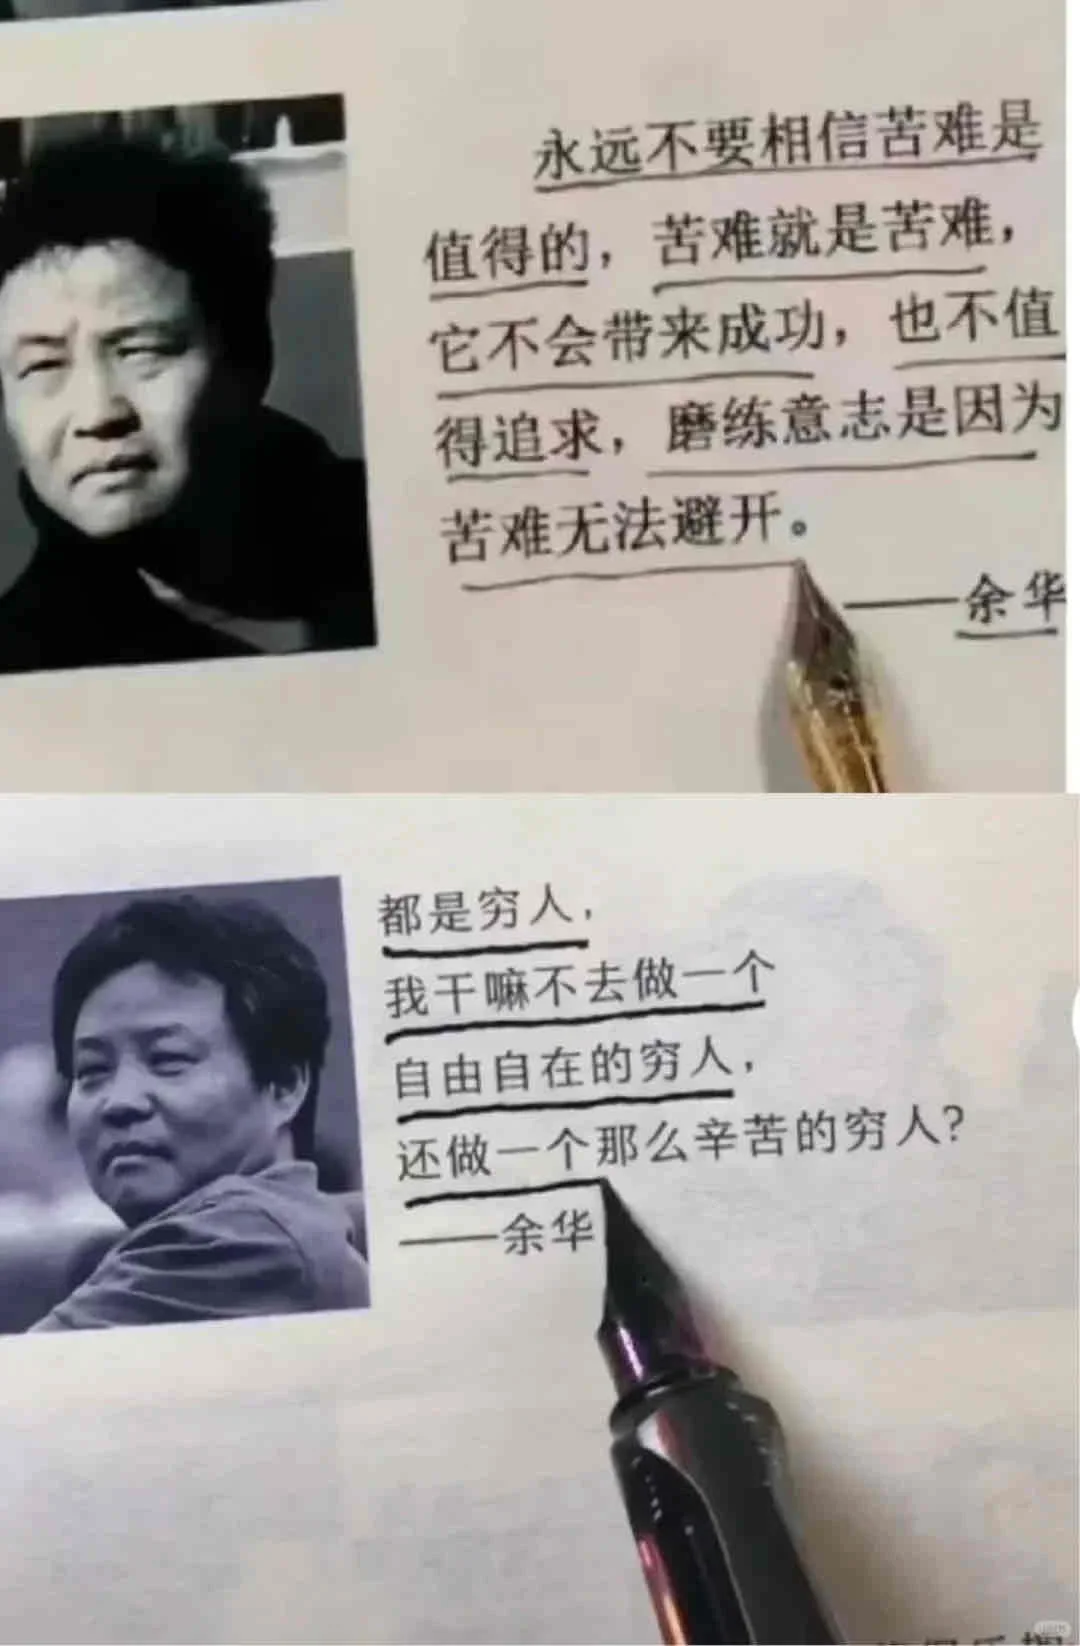 永远不要相信苦难是
值得的，苦难就是苦难，
它不会带来成功，也不值
得追求，磨练意志是因为
苦难无法避开。
——余华
都是穷人，
我干嘛不去做一个
自由自在的穷人，
还做一个那么辛苦的穷人？
——余华